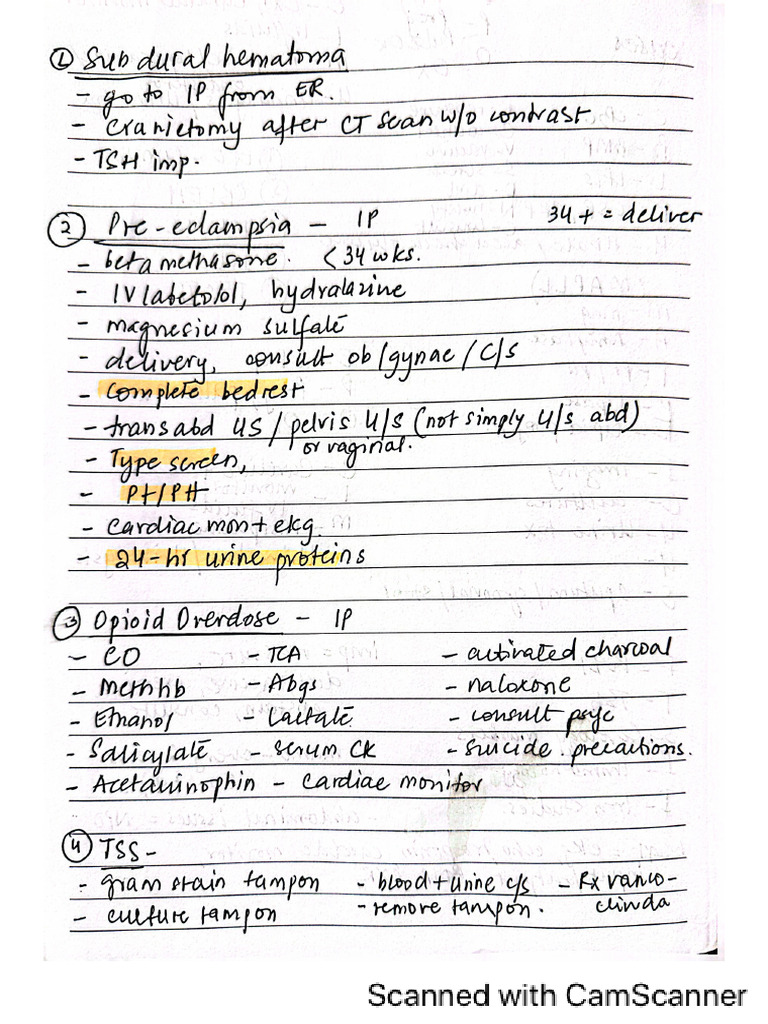 ① Subdural hematoma
- go to IP from ER.
- Cranictomy after CT scan w/o contrast
- TSH imp.
② Pre-eclampsia - IP 34+ = deliver
- betamethasone. <34 wks.
- IV labetolol, hydralazine
- magnesium sulfate
- delivery, consult ob/gynae/C/S
- complete bedrest
- transabd US/pelvis U/S (not simply U/S abd)
or vaginal.
- Type screen,
- PT/PTT
- cardiac mon + ekg.
- 24-hr urine proteins
③ Opioid Overdose - IP
- CO - TCA - activated charcoal
- Meth hb - Abgs - naloxone
- Ethanol - Lactate - consult psyc
- Salicylate - serum CK - suicide precautions.
- Acetaminophin - cardiac monitor
④ TSS -
- gram stain tampon - blood + urine c/s - Rx vanco-
- culture tampon - remove tampon. clinda
Scanned with CamScanner